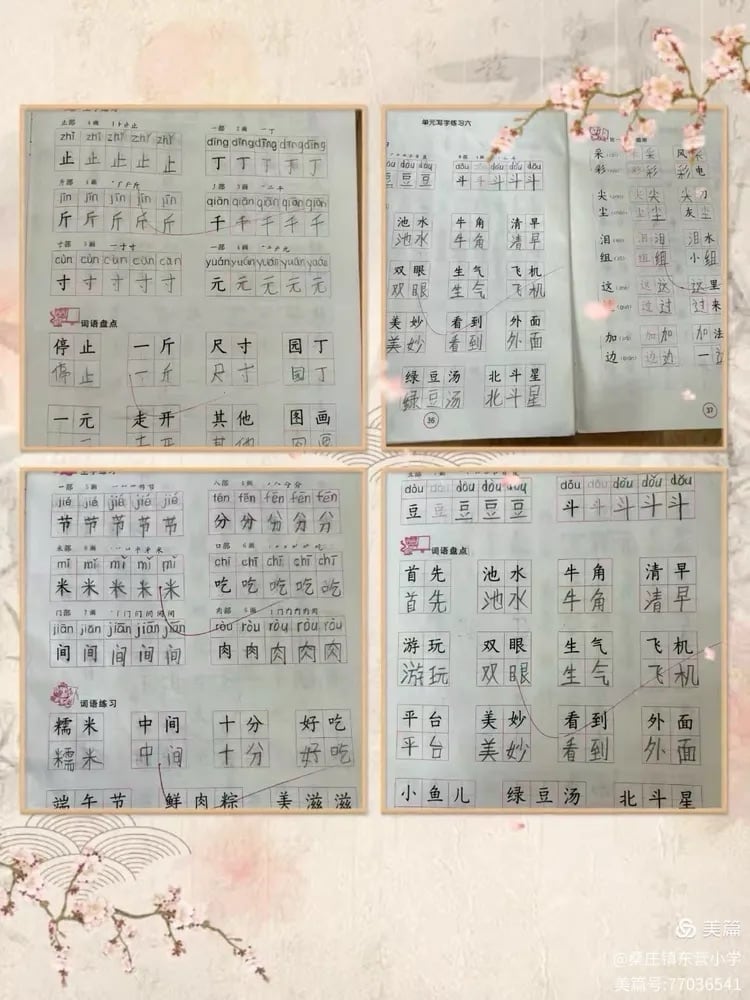 止部 4画
zhǐ zhǐ zhǐ zhǐ zhǐ
止 止 止 止 止
一部 2画
dīng dīng dīng dīng dīng
丁 丁 丁 丁 丁
斤部 4画
jīn jīn jīn jīn jīn
斤 斤 斤 斤 斤
qiān qiān qiān qiān qiān
千 千 千 千 千
寸部 3画 一寸寸
cùn cùn cùn cùn cùn
寸 寸 寸 寸 寸
yuán yuán yuán yuán yuán
元 元 元 元 元
词语盘点
停止 一斤 尺寸 园丁
停止 一斤 尺寸 园丁
一元 走开 其他 图画
单元写字练习六
dòu dòu dòu
豆 豆 豆
dǒu dǒu dǒu dǒu dǒu
斗 斗 斗 斗 斗
池水 牛角 清早
池水 牛角 清早
双眼 生气 飞机
双眼 生气 飞机
美妙 看到 外面
美妙 看到 外面
绿豆汤 北斗星
绿豆汤 北斗星
36
采 采 采 风采
彩 彩 彩 彩电
尖 尖 尖 尖刀
尘 尘 尘 灰尘
泪 泪 泪 泪水
组 组 组 小组
这 这 这 这里
过 过 过 过来
加 加 加 加法
边 边 边 一边
37
jié jié jié jié jié
节 节 节 节 节
八部 4画
fēn fēn fēn fēn fēn
分 分 分 分 分
米部 6画
mǐ mǐ mǐ mǐ mǐ
米 米 米 米 米
口部 6画
chī chī chī chī chī
吃 吃 吃 吃 吃
门部 7画
jiān jiān jiān jiān jiān
间 间 间 间 间
肉部 6画
ròu ròu ròu ròu ròu
肉 肉 肉 肉 肉
词语练习
糯米 中间 十分 好吃
糯米 中间 十分 好吃
端午节 鲜肉粽 美滋滋
dòu dòu dòu dòu dòu
豆 豆 豆 豆 豆
dǒu dǒu dǒu dǒu dǒu
斗 斗 斗 斗 斗
词语盘点
首先 池水 牛角 清早
首先 池水 牛角 清早
游玩 双眼 生气 飞机
游玩 双眼 生气 飞机
平台 美妙 看到 外面
平台 美妙 看到 外面
小鱼儿 绿豆汤 北斗星
美篇
@桑庄镇东芸小学
美篇号:77036541